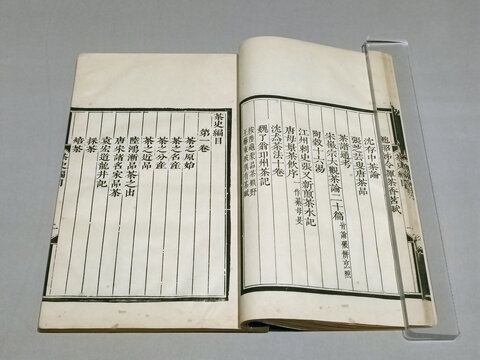 沈存中茶論
張芝芸叟唐茶品
茶譜通考
宋徽宗大觀茶論二十篇
陶穀十六湯
江州刺史張又新煎茶水記
唐母景茶飲序 一作綦母旻
沈括茶法十卷
魏了翁邛州茶記
茶史編目
第一卷
茶之原始
茶之名產
茶之分產
茶之近品
陸鴻漸品茶之出
唐宋諸名家品茶
袁宏道龍井記
採茶
焙茶
茶史編目